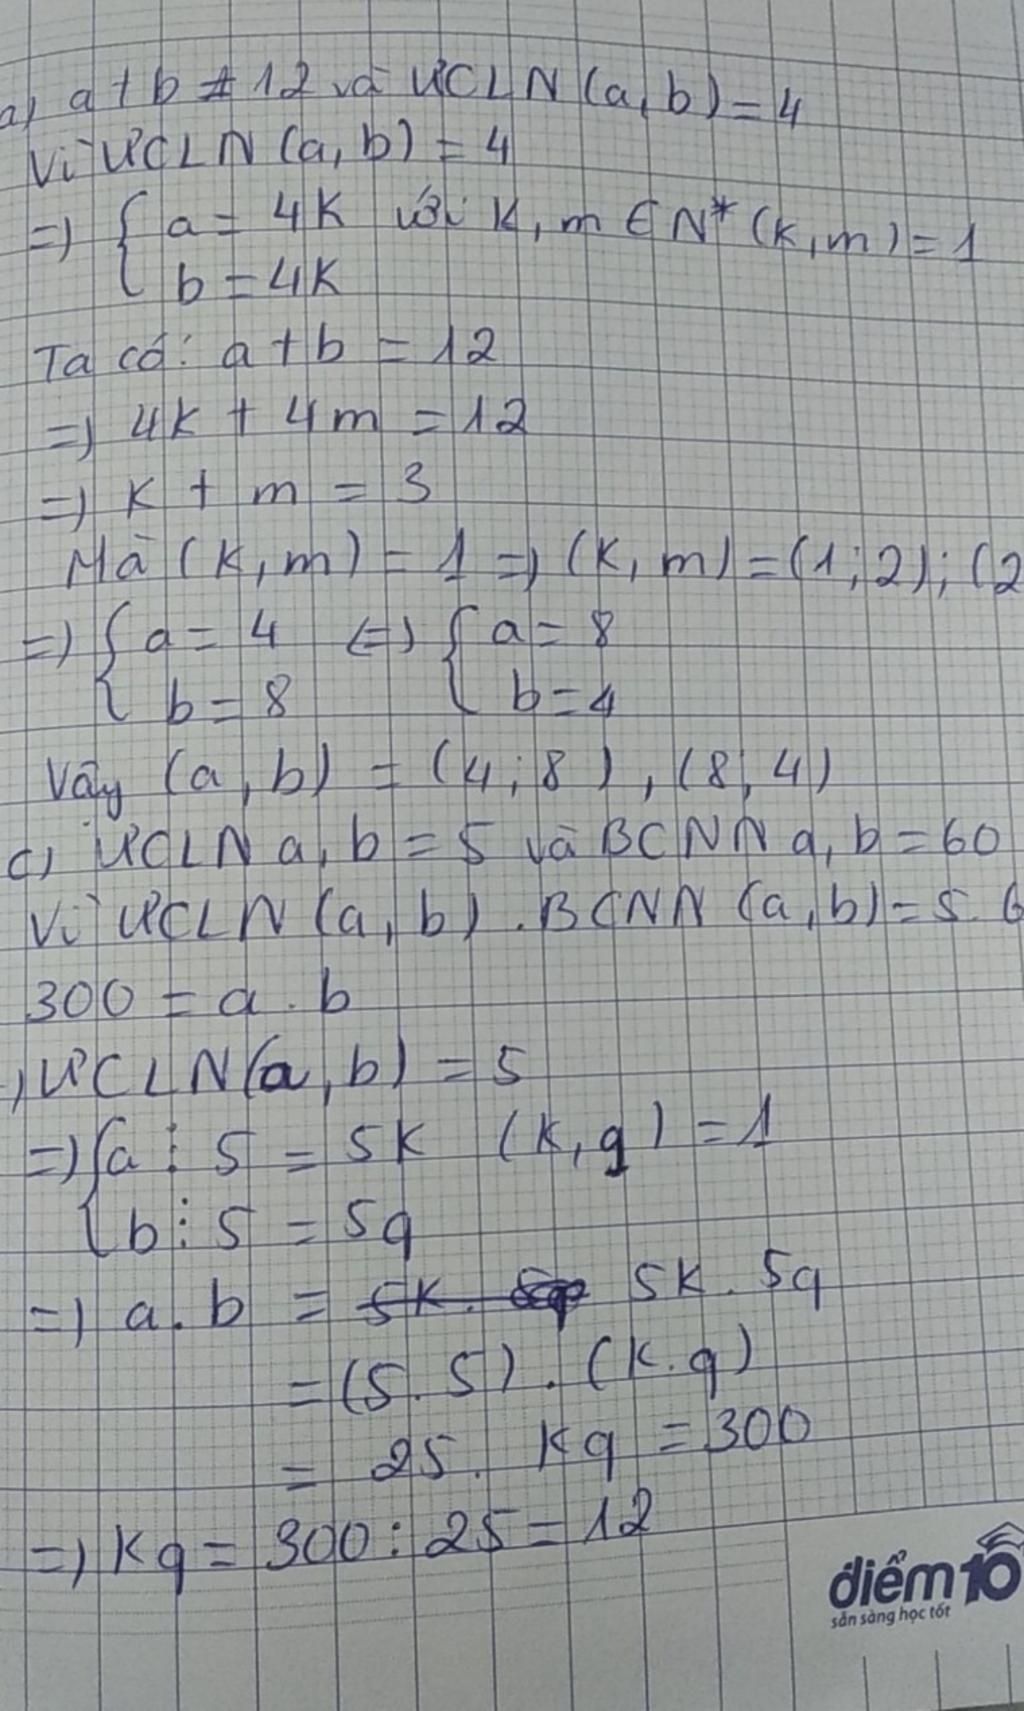 a) a + b ≠ 12 và ƯCLN (a, b) = 4
Vì ƯCLN (a, b) = 4
=) { a = 4K với K, m ∈ N* (K, m) = 1
b = 4K
Ta có: a + b = 12
=) 4K + 4m = 12
=) K + m = 3
Mà (K, m) = 1 =) (K, m) = (1; 2); (2
=) { a = 4 (=) { a = 8
b = 8 b = 4
Vây (a, b) = (4; 8), (8; 4)
c) ƯCLN a, b = 5 và BCNN a, b = 60
Vì ƯCLN (a, b) . BCNN (a, b) = 5. 6
300 = a . b
) ƯCLN (a, b) = 5
=) { a ⋮ 5 = 5K (K, q) = 1
b ⋮ 5 = 5q
=) a. b = 5K. 5q
= (5. 5) . (K. q)
= 25. Kq = 300
=) Kq = 300 : 25 = 12
điểm 10
sẵn sàng học tốt